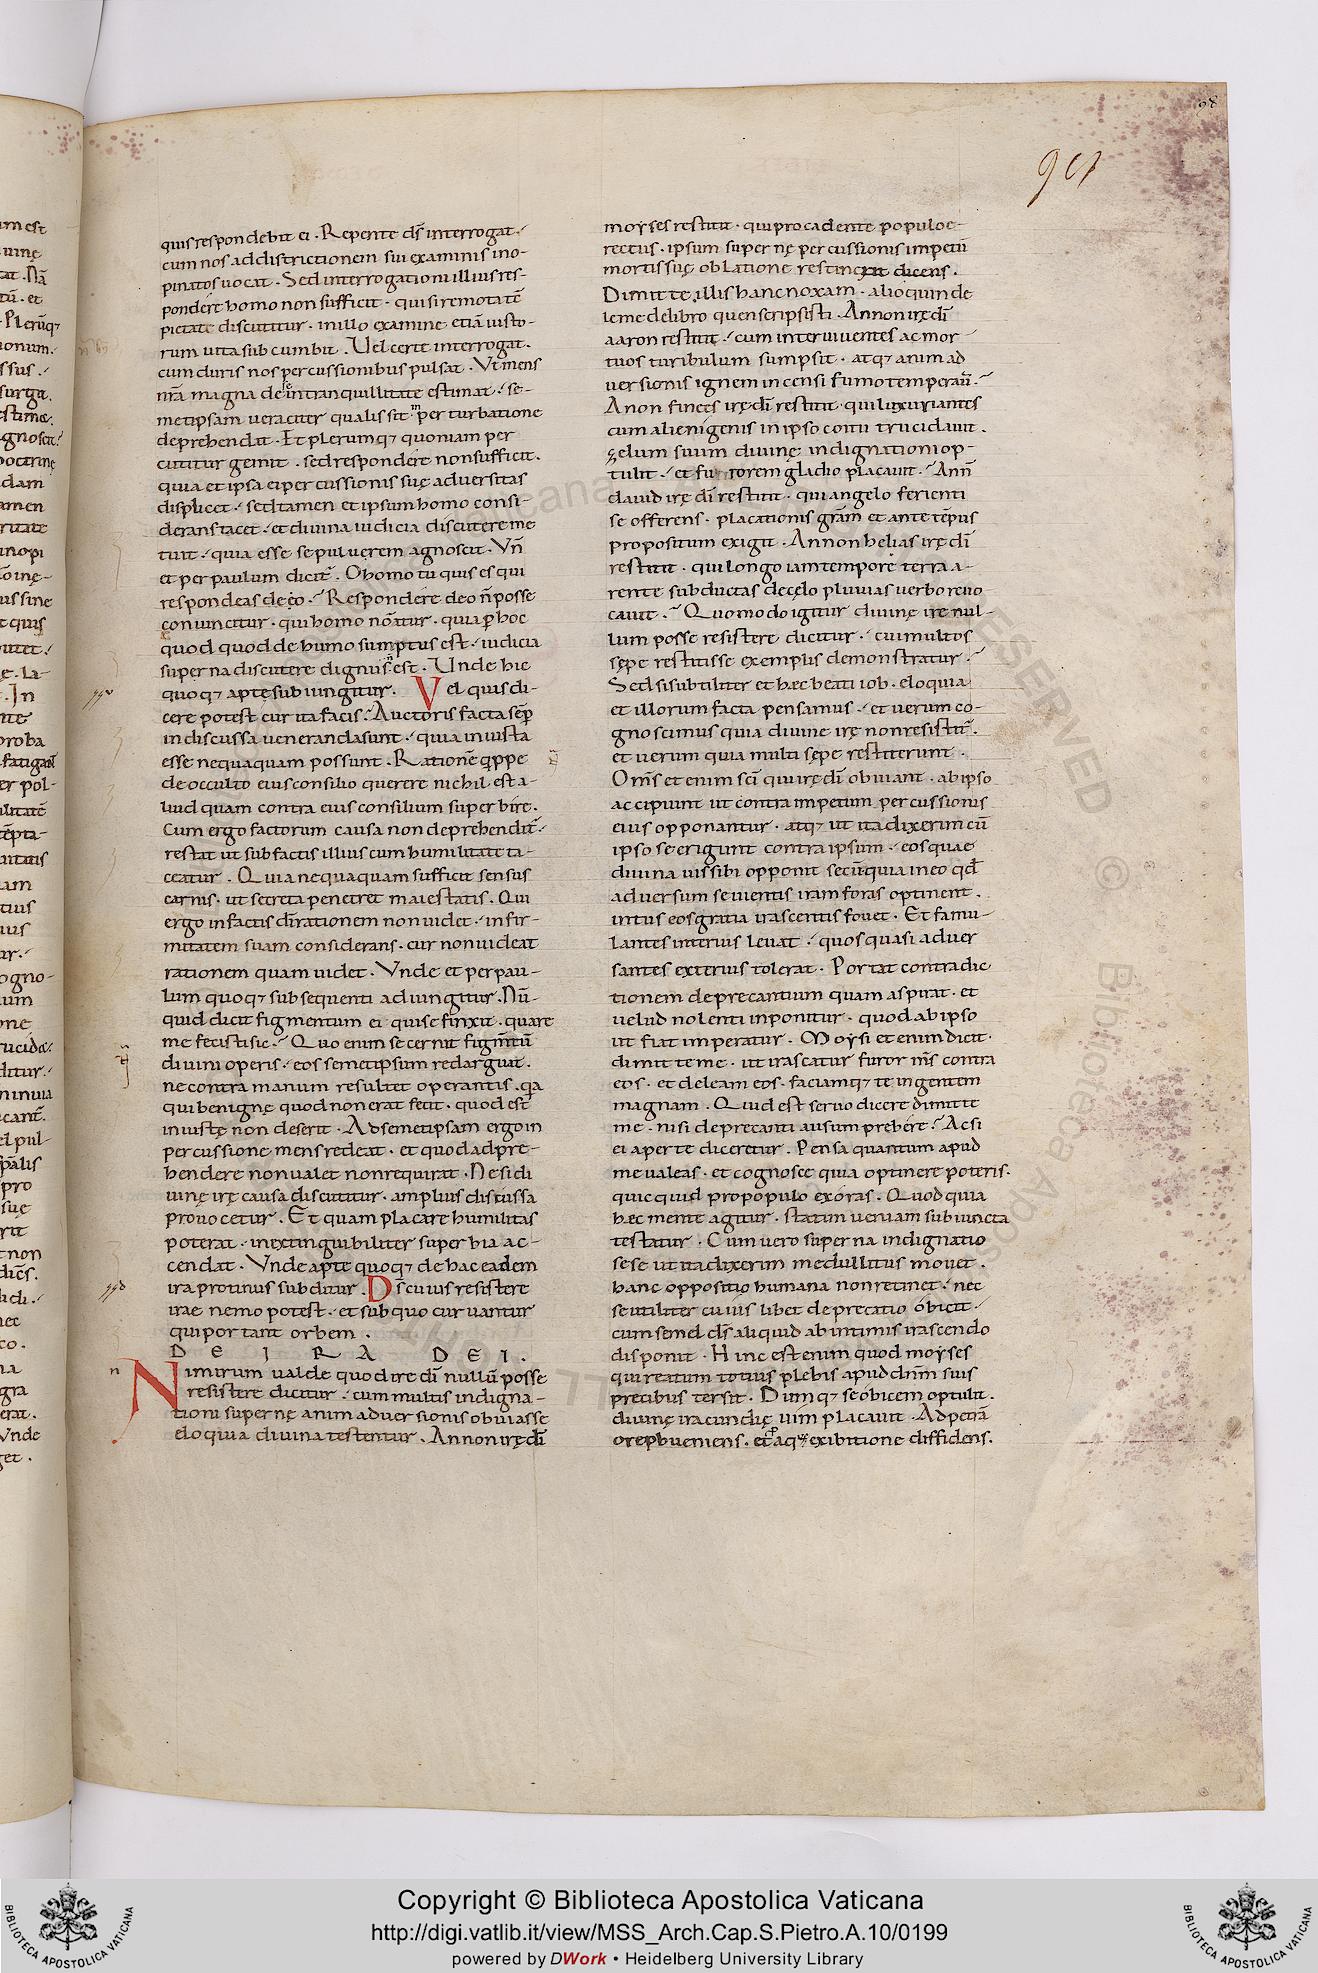 98
quis respondebit ei . Repente d̅s̅ interrogat .
cum nos ad districtionem sui examinis ino-
pinatos uocat . Sed interrogationi illius res-
pondere homo non sufficit . qui si remota tē
pietate discutitur . in illo examine etiā iusto-
rum uita subcumbit . Uel certe interrogat .
cum duris nos percussionibus pulsat . Vt mens
nr̄a magna de se in tranquillitate estimat . se-
metipsam ueraciter qualis sit in perturbatione
deprehendat . Et plerumq; quoniam per
cutitur gemit . sed respondere non sufficit .
quia et ipsa ei percussionis suę aduersitas
displicet . sed tamen et ipsum homo consi-
derans tacet . et diuina iudicia discutere me
tuit . quia esse se puluerem agnoscit . Vn̄
et per paulum dicit̄ . O homo tu quis es qui
respondeas deo . Respondere deo n̄ posse
conuincitur . qui homo nōatur . quia p̱ hoc
quod quod de humo sumptus est . iudicia
superna discutere dignus n̄ est . Unde hic
quoq; apte subiungitur . Vel quis di-
cere potest cur ita facis . Auctoris facta semp̱
indiscussa ueneranda sunt . quia iniusta
esse nequaquam possunt . Rationē q̱ppe
de occulto eius consilio querere nichil est a-
liud quam contra eius consilium superbire .
Cum ergo factorum causa non deprehendit̄ .
restat ut sub factis illius cum humilitate ta-
ceatur . Quia nequaquam sufficit sensus
carnis . ut secreta penetret maiestatis . Qui
ergo in factis dī rationem non uidet . infir-
mitatem suam considerans . cur non uideat
rationem quam uidet . Vnde et per pau-
lum quoq; subsequenti adiungitur . Nū-
quid dicit figmentum ei qui se finxit . quare
me fecisti sic . Quo enim se cernit figm̄tū
diuini operis . eos semetipsum redarguit .
ne contra manum resultet operantis . q̄a
qui benigne quod non erat fecit . quod est
iniuste non deserit . Ad semetipsam ergo in
percussione mens redeat . et quod adpre-
hendere non ualet non requirat . Ne si di
uinę irę causa discutitur . amplius discussa
prouocetur . Et quam placare humilitas
poterat . inextinguibiliter superbia ac-
cendat . Vnde apte quoq; de hac eadem
ira protinus subditur . D̅s̅ cuius resistere
irae nemo potest . et sub quo curuantur
qui portant orbem .
D E I R A D E I .
Nimirum ualde quod ire dī nullū posse
resistere dicitur . cum multis indigna-
tioni supernę animaduersionis obuiasse
eloquia diuina testentur . An non irę dī
moyses restitit . qui pro cadente populo e-
rectus . ipsum supernę percussionis impetū
mortis suę oblatione restinxit dicens .
Dimitte illis hanc noxam . alioquin de
leme de libro quen scripsisti . An non irę dī
aaron restitit . cum inter uiuentes ac mor
tuos turibulum sumpsit . atq; animad
uersionis ignem incensi fumo temperau̅ .
An non finees irę dī restitit . qui luxuriantes
cum alienigenis in ipso coitu trucidauit .
zelum suum diuine indignationi op-
tulit . et furorem gladio placauit . An n̄
dauid irę dī restitit . qui angelo ferienti
se offerens . placationis grām et ante tēpus
propositum exigit . An non helias irę dī
restitit . qui longo iam tempore terra a-
rente subductas de cęlo pluuias uerbo reuo
cauit . Quomodo igitur diuine ire nul-
lum posse resistere dicitur . cui multos
sępe restitisse exemplis demonstratur .
Sed si subtiliter et hęc beati iob . eloquia
et illorum facta pensamus . et uerum co-
gnoscimus quia diuine irę non resistit̄ .
et uerum quia multi sępe restiterunt .
Om̄s et enim sc̄i qui irę dī obuiant . ab ipso
accipiunt ut contra impetum percussionis
eius opponantur . atq; ut ita dixerim cū
ipso se erigunt contra ipsum . eos quae
diuina uis sibi opponit secū . quia in eo qd̄
aduersum seuientis iram foras optinent .
intus eos gratia irascentis fouet . Et famu-
lantes interius leuat . quos quasi aduer
santes exterius tolerat . Portat contradic
tionem deprecantium quam aspirat . et
uelud nolenti inponitur . quod ab ipso
ut fiat imperatur . Moysi et enim dicit .
dimitte me . ut irascatur furor m̄s contra
eos . et deleam eos . faciamq; te in gentem
magnam . Quid est seruo dicere dimitte
me . nisi deprecanti ausum prebere . Ac si
ei aperte diceretur . Pensa quantum apud
me ualeas . et cognosce quia optinere poteris .
quicquid pro populo exoras . Quod quia
hęc mente agitur . statim uenia subiuncta
testatur . Cum uero superna indignatio
sese ut ita dixerim medullitus mouet .
hanc oppositio humana non retinet . nec
se utiliter cuiuslibet deprecatio obicit .
cum semel d̅s̅ aliquid ab intimis irascendo
disponit . Hinc est enim quod moyses
qui reatum totius plebis apud dn̄m suis
precibus tersit . Dumq; se obicem optulit .
diuinę iracundię uim placauit . Ad petrā
oreb ueniens . et p̱ aq; exibitione diffidens .
Copyright © Biblioteca Apostolica Vaticana
http://digi.vatlib.it/view/MSS_Arch.Cap.S.Pietro.A.10/0199
powered by DWork • Heidelberg University Library